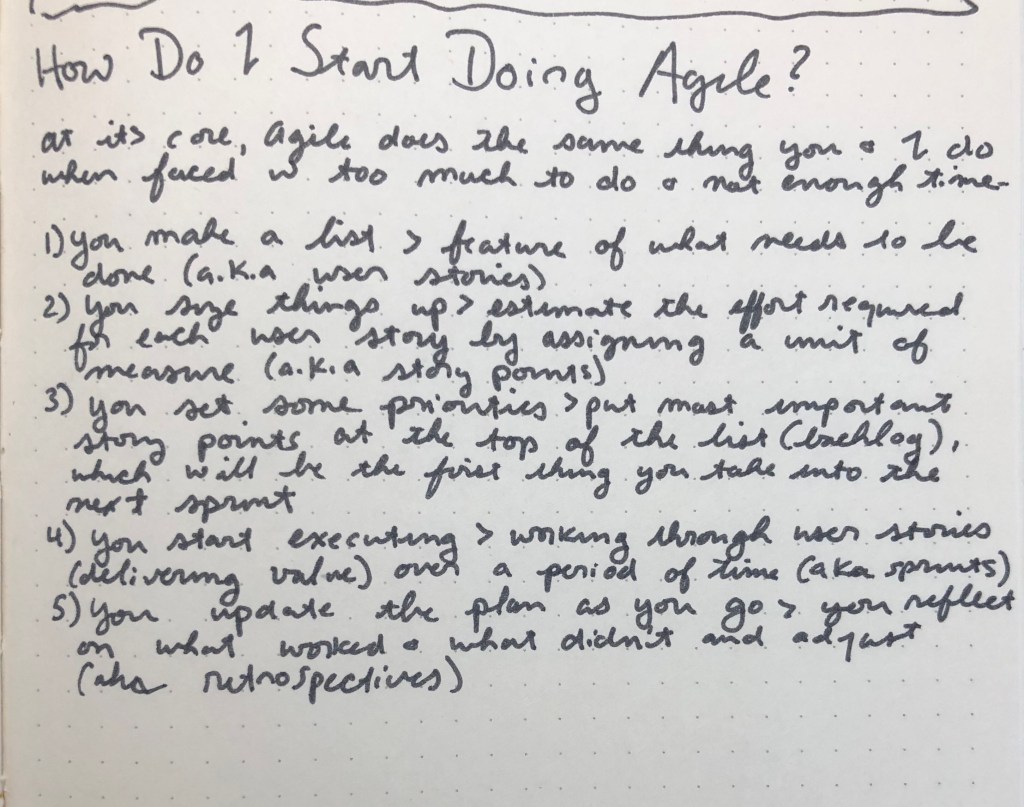 How Do I Start Doing Agile?
at its core, Agile does the same thing you & I do
when faced w too much to do & not enough time-
1) you make a list > feature of what needs to be
done (a.k.a user stories)
2) you size things up > estimate the effort required
for each user story by assigning a unit of
measure (a.k.a story points)
3) you set some priorities > put most important
story points at the top of the list (backlog),
which will be the first thing you take into the
next sprint
4) you start executing > working through user stories
(delivering value) over a period of time (aka sprints)
5) You update the plan as you go > you reflect
on what worked & what didn't and adjust
(aka retrospectives)